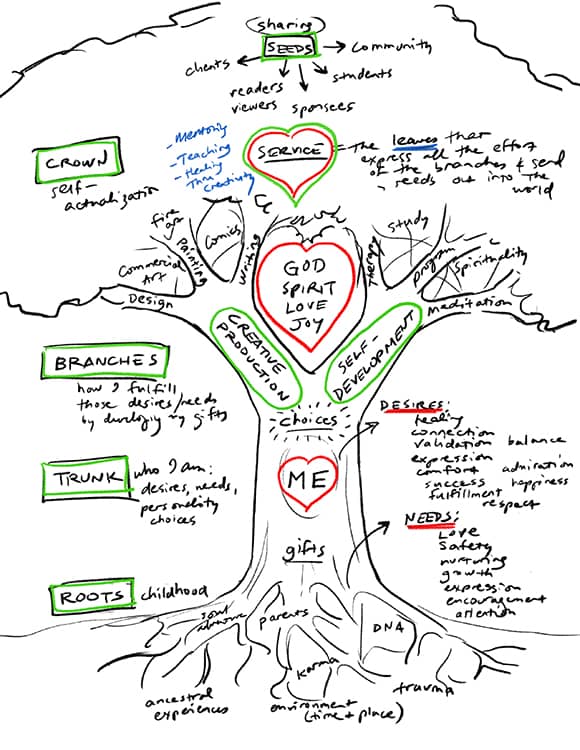 (sharing)
SEEDS
community
clients
readers
viewers
sponsees
students
- Mentoring
- Teaching
- Healing
Thru
Creativity
SERVICE
= The leaves that
express all the effort
of the branches & send
seeds out into the
world
CROWN
self-
actualization
fine
art
Painting
Comics
writing
Commercial
Art
Design
GOD
SPIRIT
LOVE
JOY
Therapy
Study
program
Spirituality
Meditation
CREATIVE
PRODUCTION
SELF-
DEVELOPMENT
BRANCHES
how I fulfill
those desires/needs
by developing my gifts
choices
DESIRES:
healing
connection
validation
balance
expression
comfort
admiration
success
happiness
fulfillment
respect
TRUNK
who I am:
desires, needs,
personality
choices
ME
NEEDS:
Love
Safety
nurturing
growth
expression
encouragement
attention
gifts
ROOTS
childhood
soul
parents
DNA
karma
trauma
ancestral
experiences
environment
(time + place)